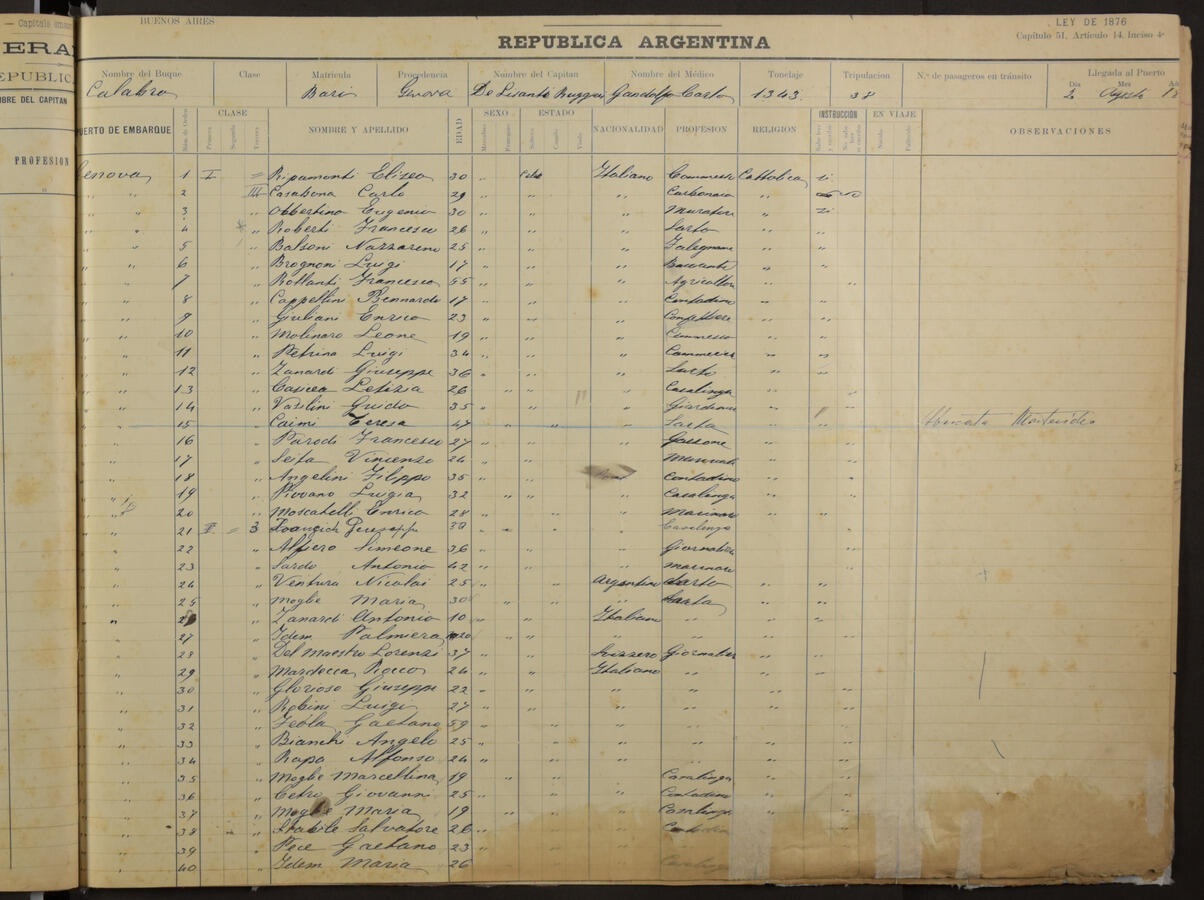 — Capitale
BUENOS AIRES
LEY DE 1876
Capítulo 51, Artículo 14, Inciso 4º
REPUBLICA ARGENTINA
ERA
EPUBLIC
BRE DEL CAPITAN
PROFESION
Nombre del Buque Clase Matrícula Procedencia Nombre del Capitan Nombre del Médico Tonelaje Tripulacion N.º de pasageros en tránsito Llegada al Puerto
Dia Mes
Calabro Bari Genova Gandolfo Carlo 1343 38 2 Agosto 18
UERTO DE EMBARQUE Núm. de Orden CLASE NOMBRE Y APELLIDO EDAD SEXO ESTADO NACIONALIDAD PROFESION RELIGION INSTRUCCIÓN EN VIAJE OBSERVACIONES
Primera Segunda Tercera Masculino Femenino Soltero Casado Viudo Nacido Fallecido
Genova 1 I " Ripamonti Eliseo 30 " Italiano Commerc Cattolica si
" " 2 III Casabona Carlo 29 " " " Carbonaio " no
" " 3 " Obbertino Eugenio 30 " " " Muratore " si
" " 4 " Roberti Francesco 26 " " " Sarto " "
" " 5 " Balsoni Nazzareno 25 " " " Falegname " "
" " 6 " Brognoni Luigi 17 " " " " "
" " 7 " Rollanti Francesco 55 " " " Agricoltore " "
" " 8 " Cappellini Bennardo 17 " " " Contadino " "
" " 9 " Giuliani Enrico 23 " " " " "
" " 10 " Molinaro Leone 19 " " " Commesso " "
" " 11 " Petrina Luigi 34 " " " Commerc " "
" " 12 " Zanardi Giuseppe 36 " " " Sarto " "
" " 13 " Letizia 26 " " " Casalinga " "
" " 14 " Vasilini Guido 35 " " " Giardin " "
" 15 " Caimi Teresa 47 " " " Sarta " " Montevideo
" 16 " Parodi Francesco 27 " " " Garzone " "
" 17 " Seifa Vincenzo 24 " " " "
" 18 " Angelini Filippo 35 " " Contadino " "
" 19 " Piovano Luigia 32 " " " Casalinga " "
" 20 " Moscatelli Enrico 28 " " " Marinaro " "
" 21 II " 3 Giuseppe 38 " " " Casalinga
" 22 " Alfiero Simeone 36 " " " Giornaliere " "
" 23 " Sardo Antonio 42 " " " Marinaro " "
" 24 " Ventura Nicolai 25 " " Argentino Sarto " "
" 25 " Moglie Maria 30 " " " Sarta " "
" " Zanardi Antonio 10 " " Italiano " " "
" 27 " Idem Palmiera 20 " " " " " "
" 28 " Del Maestro Lorenzi 37 " " Svizzero Giornalier " "
" 29 " Mardocca Rocco 24 " " Italiano " " "
" 30 " Glorioso Giuseppe 22 " " " " " "
" 31 " Robini Luigi 27 " " " " " "
" 32 " Gaetano 59 " " " " " "
" 33 " Bianchi Angelo 25 " " " " " "
" 34 " Rapa Alfonso 24 " " " " " "
" 35 " Moglie Marcellina 19 " " " Casalinga " "
" 36 " Cetro Giovanni 25 " " " Contadino " "
" 37 " Moglie Maria 19 " " " Casalinga " "
" 38 " Stabile Salvatore 26 " " " Contadino " "
" 39 " Pece Gaetano 23 " " "
" 40 " Idem Maria 26 " " Casalinga